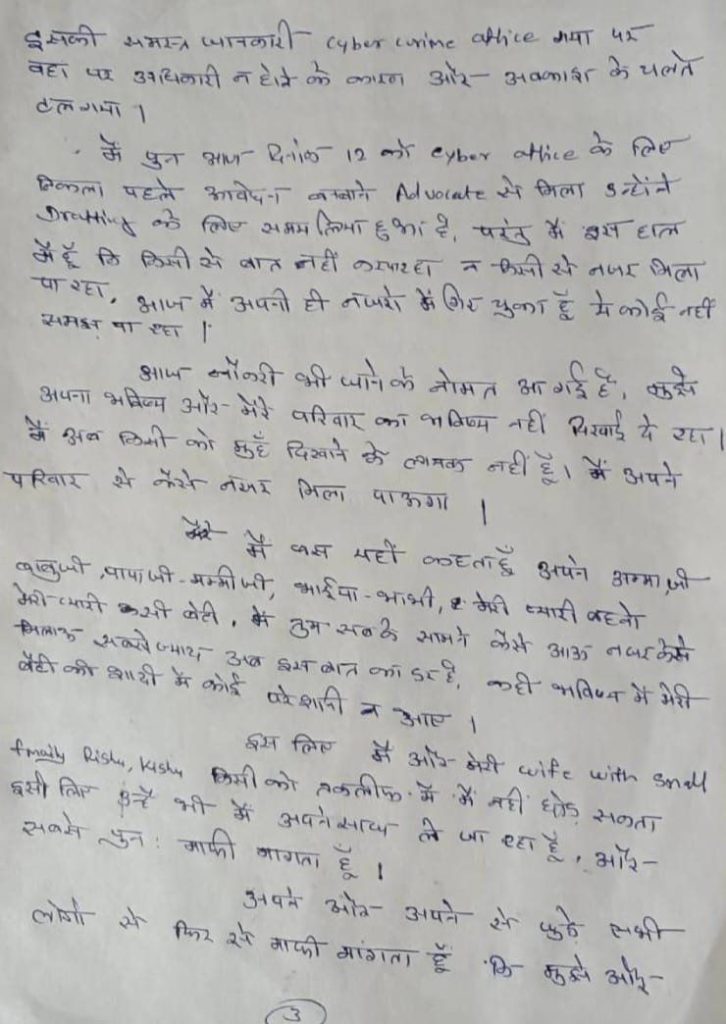 इसकी समस्त जानकारी cyber crime office गया पर
वहा पर अधिकारी न होने के कारण और अवकाश के चलते
टल गया ।
मैं पुन आज दिनांक 12 को cyber office के लिए
निकला पहले आवेदन बनवाने Advocate से मिला उन्होंने
Drafting के लिए समय लिया हुआ है, परंतु मैं इस हाल
में हूँ कि किसी से बात नहीं कर पा रहा न किसी से नजर मिला
पा रहा, आज मैं अपनी ही नजरो में गिर चुका हूँ ये कोई नहीं
समझ पा रहा ।
आज नौकरी भी जाने के नोमत आ गई है, मुझे
अपना भविष्य और मेरे परिवार का भविष्य नहीं दिखाई दे रहा ।
मैं अब किसी को मुहँ दिखाने के लायक नहीं हूँ। मैं अपने
परिवार से कैसे नजर मिला पाऊगा ।
मैं बस यही कहता हूँ अपने अम्मा जी
बाबुजी, पापाजी - मम्मीजी, भाईया - भाभी, मेरी प्यारी बहनो
मेरी प्यारी बेटी, मैं तुम सबके सामने कैसे आऊ नजर कैसे
मिलाऊ सबसे ज्यादा अब इस बात का डर है, कही भविष्य में मेरी
बेटी की शादी में कोई परेशानी न आए ।
इस लिए मैं और मेरी wife with small
family Rishu, किसी को तकलीफ में मैं नहीं छोड़ सकता
इसी लिए उन्हें भी मैं अपने साथ ले जा रहा हूँ, और
सबसे पुन: माफी मागता हूँ ।
अपने और अपने से जुड़े सभी
लोगो से फिर से माफी मांगता हूँ कि मुझे और
3